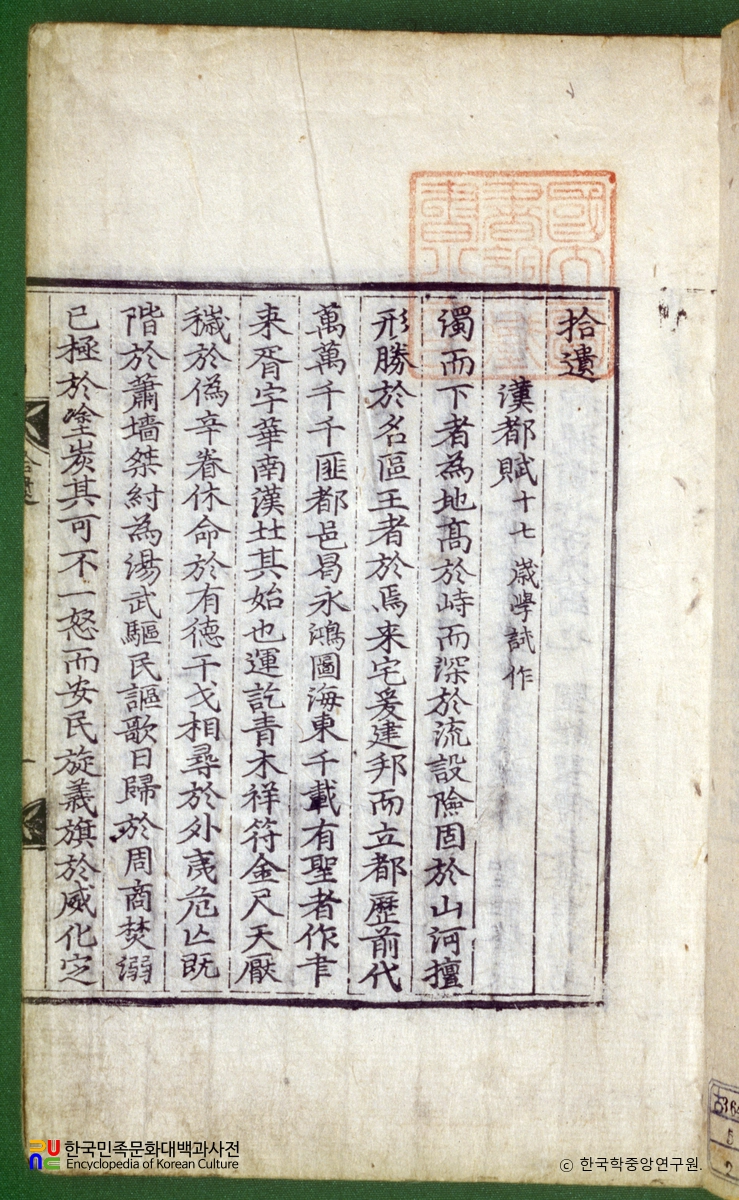 拾遺
漢都賦 十七歲學試作
濁而下者為地高於峙而深於流設險固於山河擅
形勝於名區王者於焉来宅爰建邦而立都歷前代
萬萬千千匪都邑曷永鴻圖海東千載有聖者作聿
来胥宇華南漢城其始也運訖青木祥符金尺天厭
穢於僞辛眷休命於有德干戈相尋於外夷危亡旣
階於蕭墻桀紂為湯武驅民謳歌日歸於周商焚溺
已極於塗炭其可不一怒而安民旋義旗於威化定
拾遺
한국민족문화대백과사전
Encyclopedia of Korean Culture
© 한국학중앙연구원.